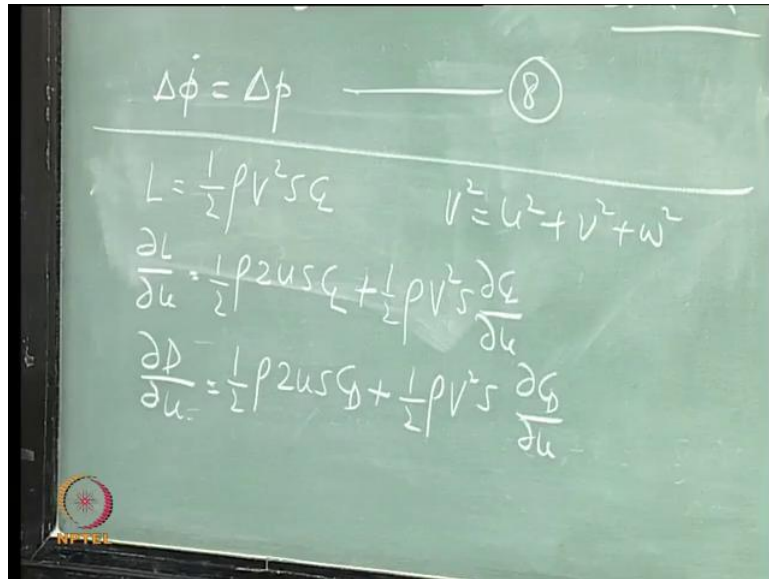 Δφ̇ = Δp ——— ⑧
L = 1/2 ρV²SC_L    V² = u² + v² + w²
∂L/∂u = 1/2 ρ2uSC_L + 1/2 ρV²S ∂C_L/∂u
∂D/∂u = 1/2 ρ2uSC_D + 1/2 ρV²S ∂C_D/∂u
NPTEL